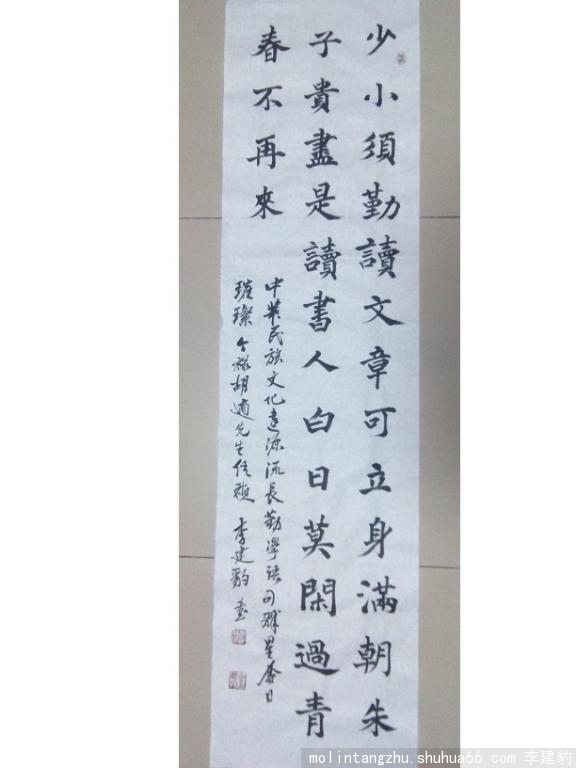 少小須勤讀文章可立身滿朝朱
子貴盡是讀書人白日莫閑過青
春不再來
中華民族文化遠源流長勤學語句群星奪目
璀璨 今祿胡適先生
李建豹 書
molintangzhu.shuhua66.com 李建豹